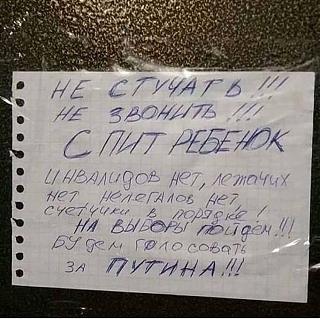 НЕ СТУЧАТЬ!!!
НЕ ЗВОНИТЬ!!!
СПИТ РЕБЕНОК
ИНВАЛИДОВ НЕТ, лежачих
нет нелегалов нет,
счетчики в порядке!
НА ВЫБОРЫ пойдем!!!
БУдем голосовать
за ПУТИНА!!!